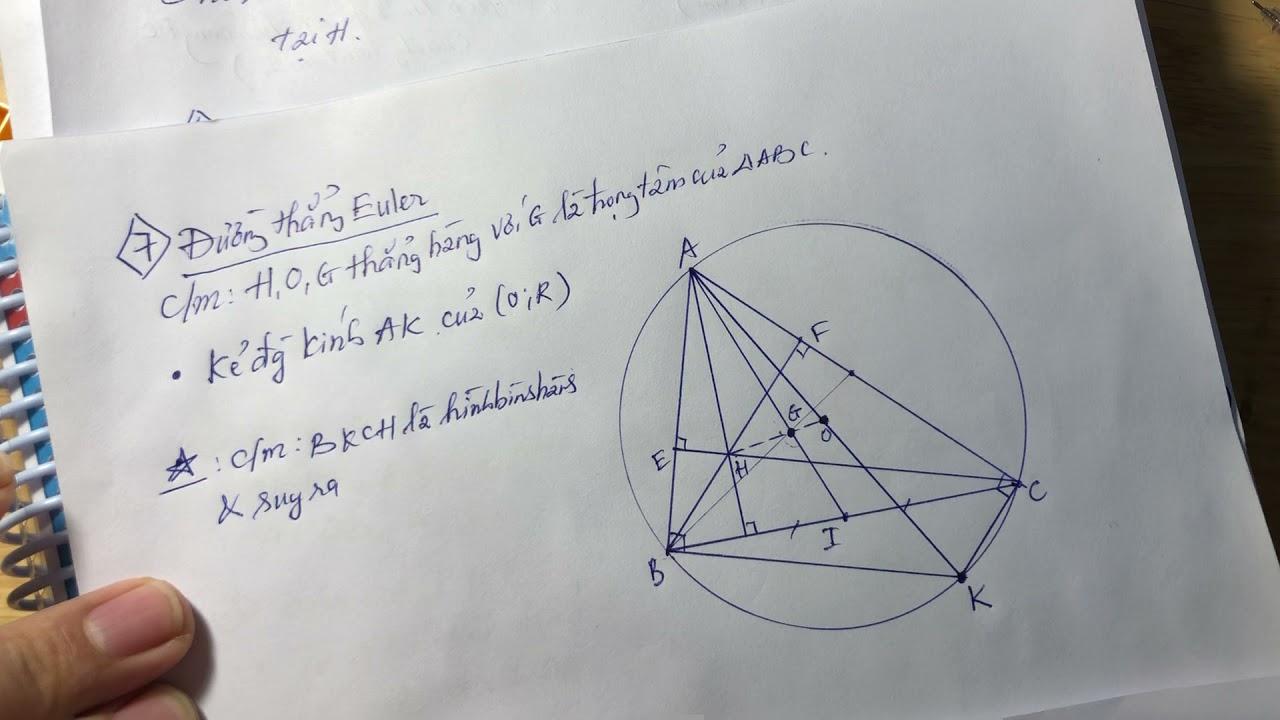 tại H.
7 Đường thẳng Euler
C/m: H, O, G thẳng hàng với G là trọng tâm của ΔABC.
• Kẻ đg kính AK của (O; R)
☆: C/m: BKCH là hình bình hành
& suy ra
A
F
G
O
E
H
C
I
B
K